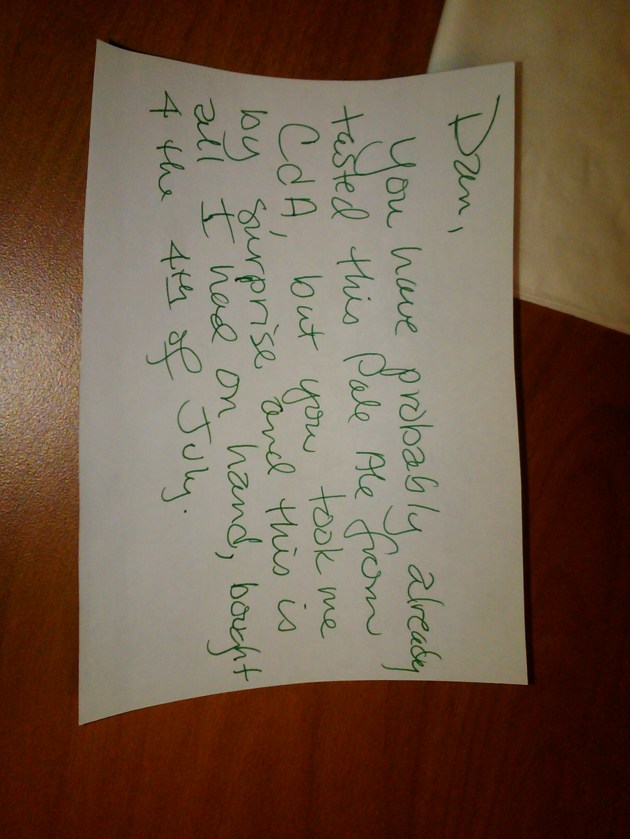 Dan,
You have probably already
tasted this Pale Ale from
CdA, but you took me
by surprise and this is
all I had on hand, bought
4 the 4th of July.